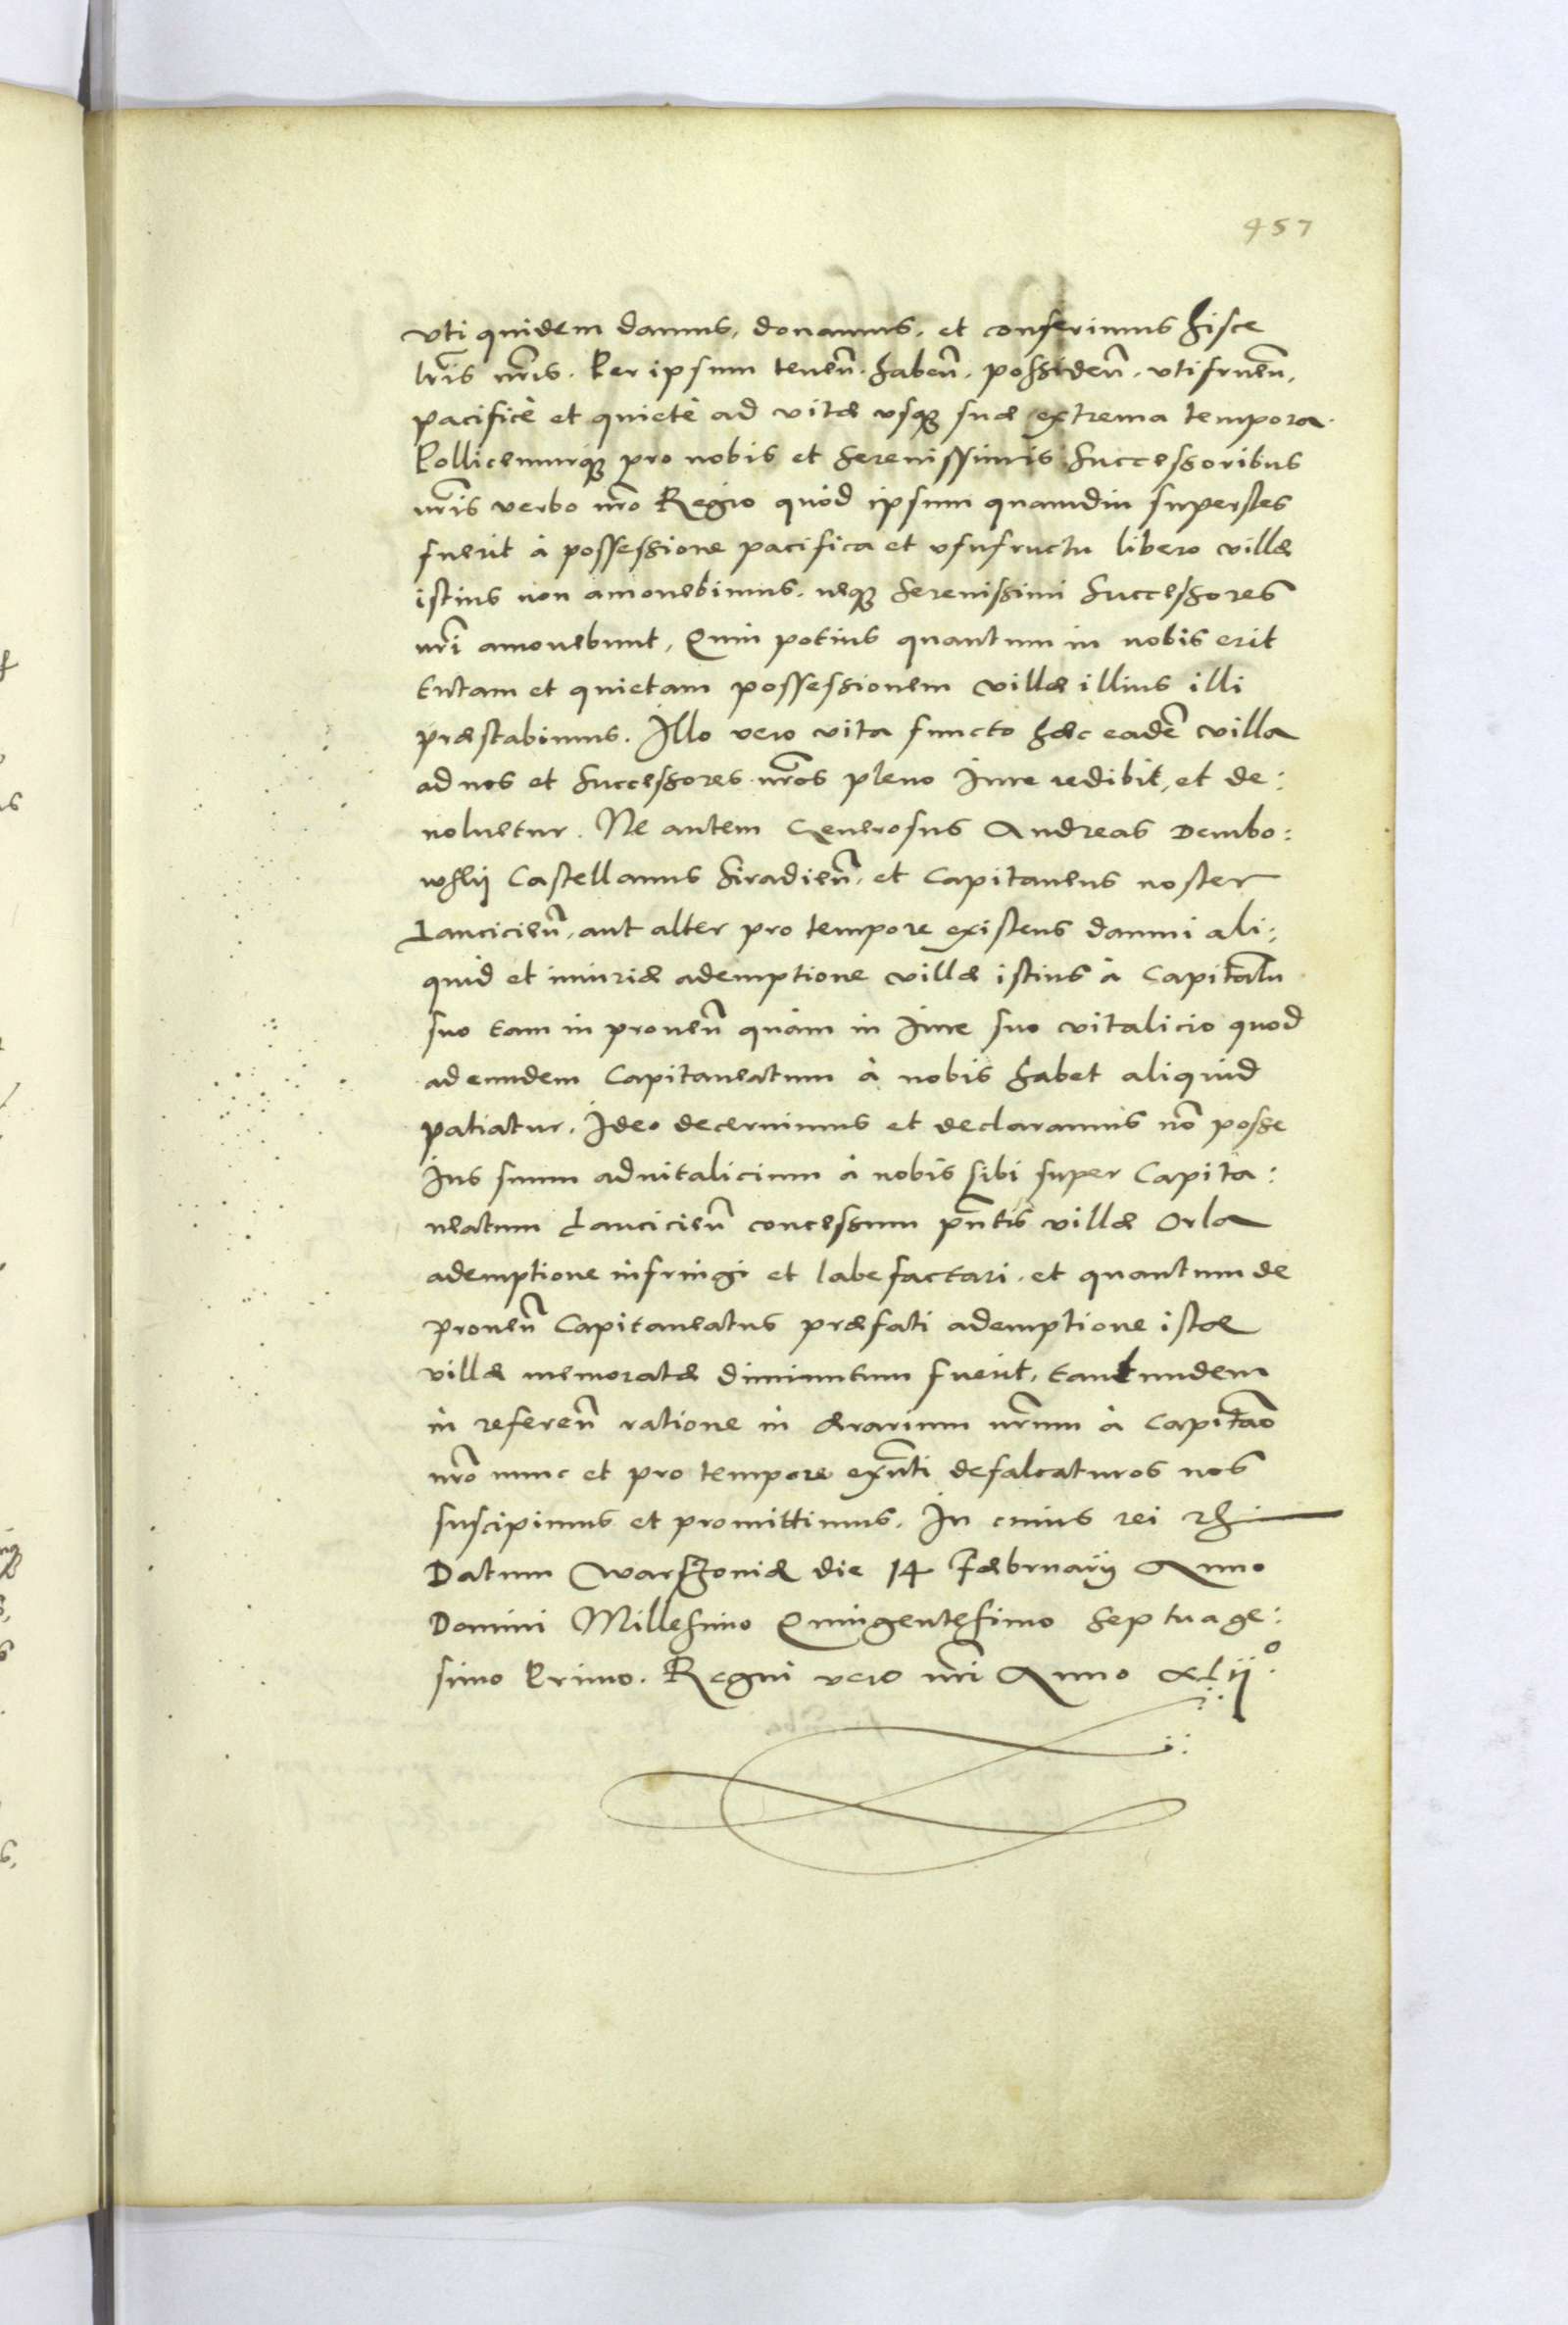 457
vti quidem damus, donamus, et conferimus hisce
lr̃is nr̃is. Per ipsum tenen̄. haben̄. possiden̄. vtifruen̄.
pacificè et quietè ad vitæ vsq; suæ extrema tempora.
Pollicemurq; pro nobis et Serenissimis Successoribus
nr̃is verbo nr̃o Regio quòd ipsum quamdiu superstes
fuerit à possessione pacifica et vsufructu libero villæ
istius non amouebimus, neq; Serenissimi Successores
nr̃i amouebunt, Quin potius quantum in nobis erit
tutam et quietam possessionem villæ illius illi
præstabimus. Illo vero vita functo hæc eadē villa
ad nos et Successores nr̃os pleno Iure redibit, et de:
voluetur. Ne autem Generosus Andreas Dembo:
wskij Castellanus Siradien̄. et Capitaneus noster
Lancicien̄. aut alter pro tempore existens damni ali:
quid et iniuriæ ademptione villæ istius à Capitātu
suo tam in prouen̄ quàm in Iure suo vitalicio quod
ad eundem Capitaneatum à nobis habet aliquid
patiatur. Ideo decernimus et declaramus nō posse
Ius suum aduitalicium à nobis sibi super Capita:
neatum Lancicien̄ concessum pñtis villæ Orla
ademptione infringi et labefactari. et quantum de
prouen̄ Capitaneatus præfati ademptione istæ
villæ memoratæ diminutum fuerit, tantundem
in referen̄ ratione in ærarium nr̃um à Capitāo
nr̃o nunc et pro tempore exñti defalcaturos nos
suscipimus et promittimus. In cuius rei
Datum Warszouiæ die 14 Fæbruarij Anno
Domini Millesimo Quingentesimo Septuage:
simo Primo. Regni vero nr̃i Anno xlii°